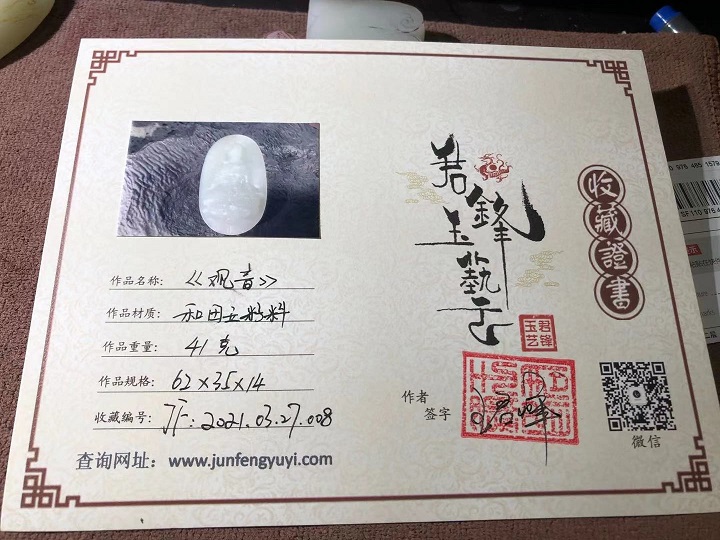 作品名称：《观音》
作品材质：和田玉籽料
作品重量：41克
作品规格：62×35×14
收藏编号：JF：2021.03.27.008
查询网址：www.junfengyuyi.com
君鋒
玉藝
君锋
玉艺
作者
签字
收藏證書
微信